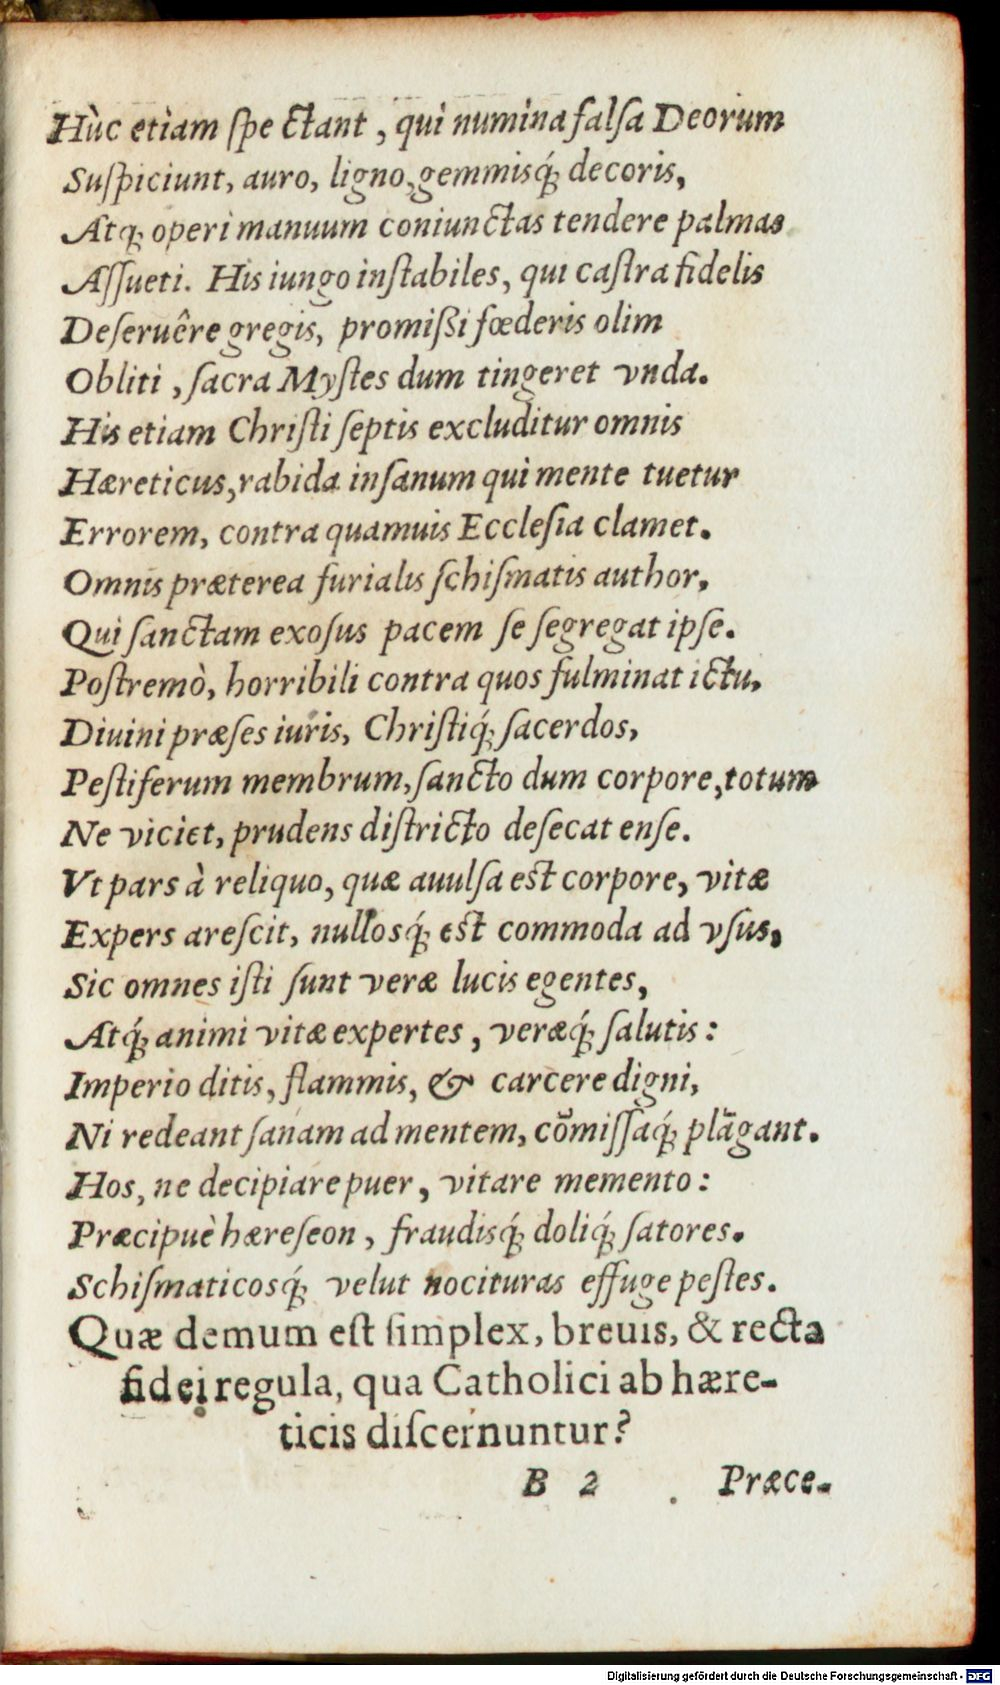 Hùc etiam ſpectant, qui numina falſa Deorum
Suſpiciunt, auro, ligno, gemmisq́; decoris,
Atq; operi manuum coniunctas tendere palmas
Aſſueti. His iungo inſtabiles, qui caſtra fidelis
Deſeruêre gregis, promißi fœderis olim
Obliti, ſacra Myſtes dum tingeret vnda.
His etiam Chriſti ſeptis excluditur omnis
Hæreticus, rabida inſanum qui mente tuetur
Errorem, contra quamuis Eccleſia clamet.
Omnis præterea furialis ſchiſmatis author,
Qui ſanctam exoſus pacem ſe ſegregat ipſe.
Poſtremò, horribili contra quos fulminat ictu,
Diuini præſes iuris, Chriſtiq́; ſacerdos,
Peſtiferum membrum, ſancto dum corpore, totum
Ne viciet, prudens diſtricto deſecat enſe.
Vt pars à reliquo, quæ auulſa eſt corpore, vitæ
Expers areſcit, nullosq́; eſt commoda ad vſus,
Sic omnes iſti ſunt veræ lucis egentes,
Atq́; animi vitæ expertes, veræq́; ſalutis:
Imperio ditis, flammis, & carcere digni,
Ni redeant ſanam ad mentem, cōmiſſaq́; plāgant.
Hos, ne decipiare puer, vitare memento:
Præcipuè hæreſeon, fraudisq́; doliq́; ſatores.
Schiſmaticosq́; velut nocituras effuge peſtes.
Quæ demum eſt ſimplex, breuis, & recta
fidei regula, qua Catholici ab hære-
ticis diſcernuntur?
B 2 Præce-
Digitalisierung gefördert durch die Deutsche Forschungsgemeinschaft - DFG